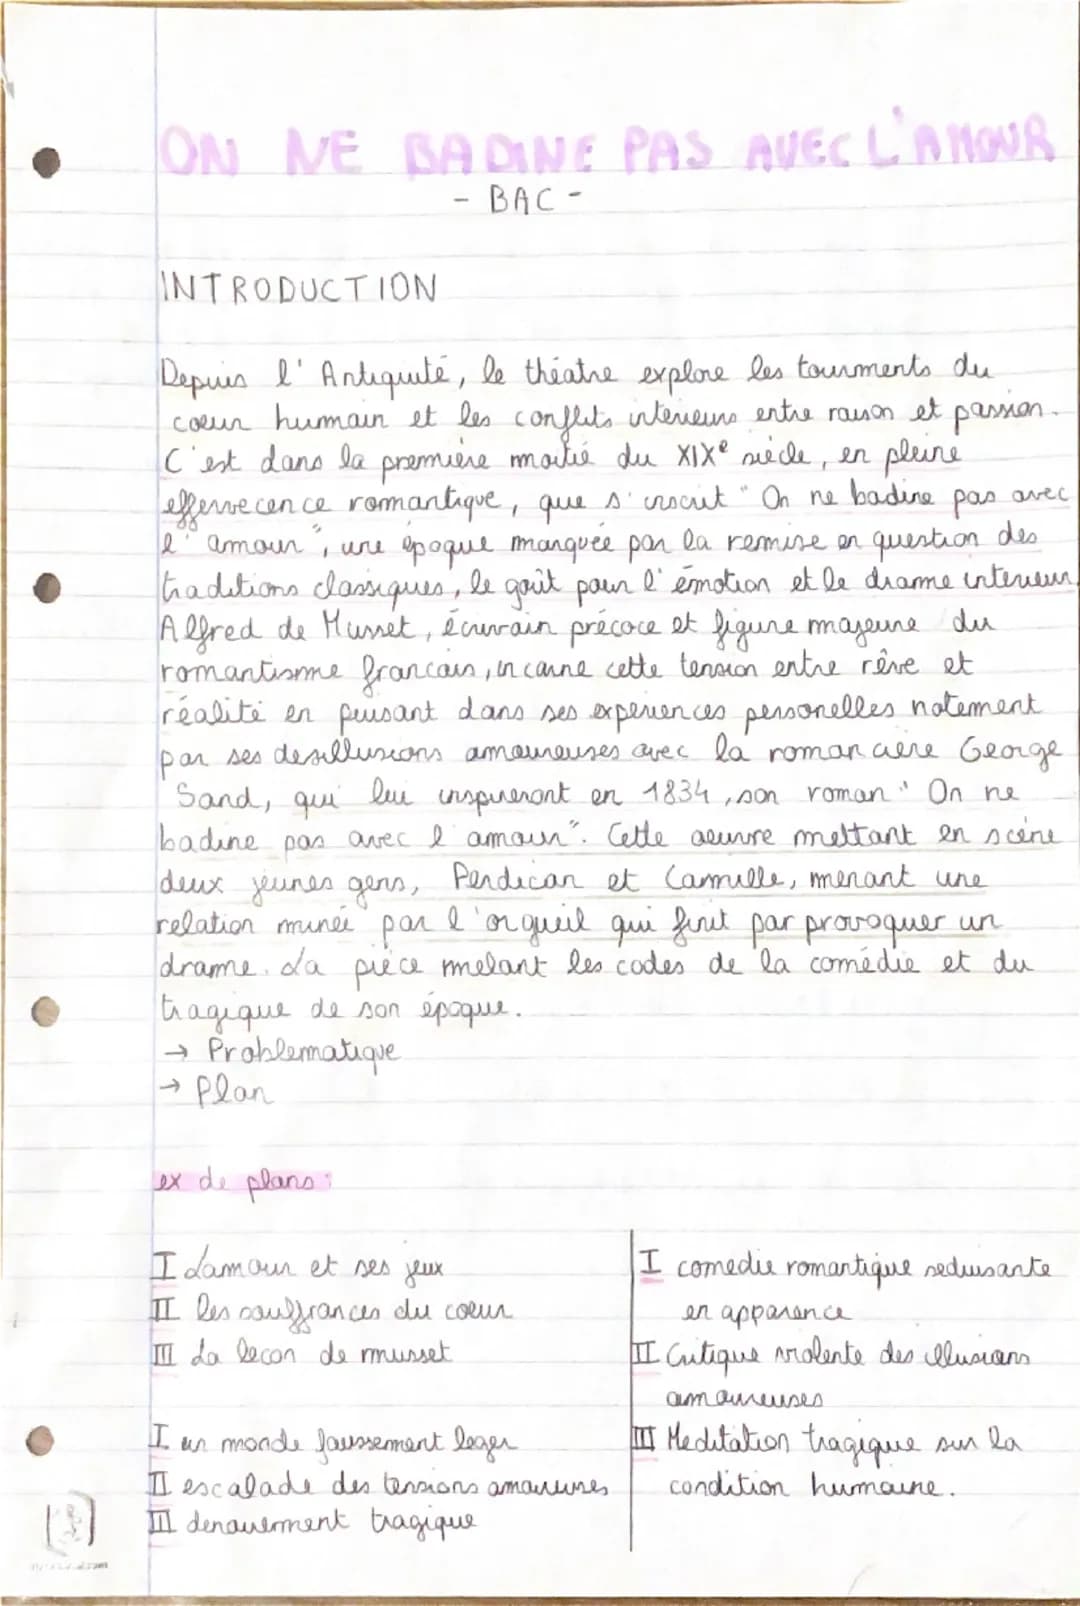 ON NE BADINE PAS AVEC L'AMOUR
- BAC -
INTRODUCTION
Depuis l'Antiquité, le théatre explore les tourments du
coeur humain et les conflits interieurs entre raison et passion.
C'est dans la première moitié du XIXe siècle, en pleine
effervecence romantique, que s'inscrit "On ne badine pas avec
l'amour", une époque marquée par la remise en question des
traditions classiques, le goût pour l'émotion et le drame interieur.
Alfred de Musset, écrivain précoce et figure majeure du
romantisme francais, incarne cette tension entre rêve et
réalité en puisant dans ses experiences personelles notement
par ses desillusions amoureuses avec la romancière George
Sand, qui lui inspireront en 1834, son roman "On ne
badine pas avec l'amour". Cette oeuvre mettant en scène
deux jeunes gens, Perdican et Camille, menant une
relation minée par l'orgueil qui finit par provoquer un
drame. La pièce melant les codes de la comédie et du
tragique de son époque.
→ Problematique
→ Plan
ex de plans:
I L'amour et ses jeux
II les souffrances du coeur
III La lecon de musset
I un monde faussement leger
II escalade des tensions amoureuses
III denouement tragique
I comedie romantique seduisante
en apparence
II Critique violente des illusions
amoureuses
III Meditation tragique sur la
condition humaine.